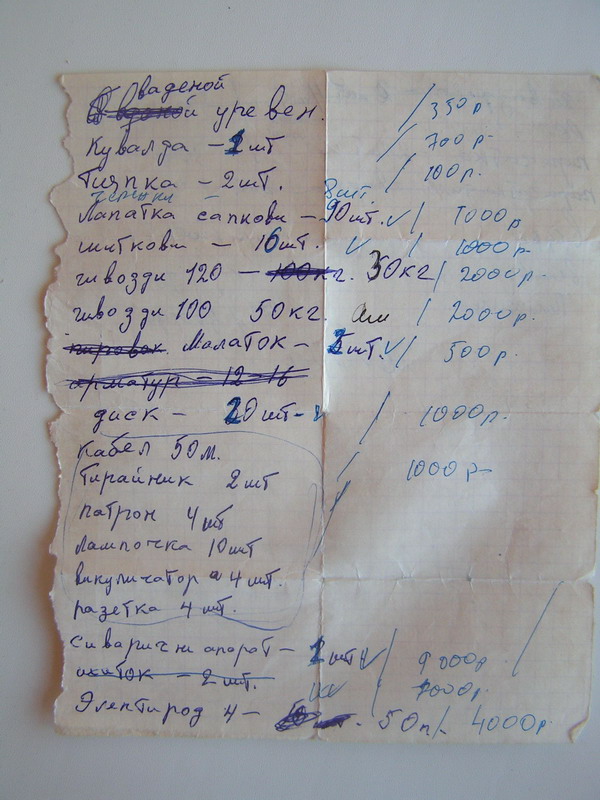 ваденой
уревен. / 350р
Кувалда – 1 шт / 700р
Тияпка – 2 шт. / 100р.
черенки – 8 шт.
Лапатка сапкови – 90 шт. v / 7000р
шиткови – 16 шт. v / 1000р
гивозди 120 – 100кг. 50кг / 2000р.
гивозди 100 50кг. / 2000р.
Малаток – шт. v / 500р.
арматур – 12-16
диск – 20 шт – / 1000р.
кабел 50м.
тирайник 2 шт / 1000р
патрон 4 шт
лампочка 10 шт
викуличатор 4 шт.
разетка 4 шт.
сиварични апорот – 1 шт v / 9000р
шиток – 2 шт. / 7000р.
Электирод 4 – 50п/. 4000р.